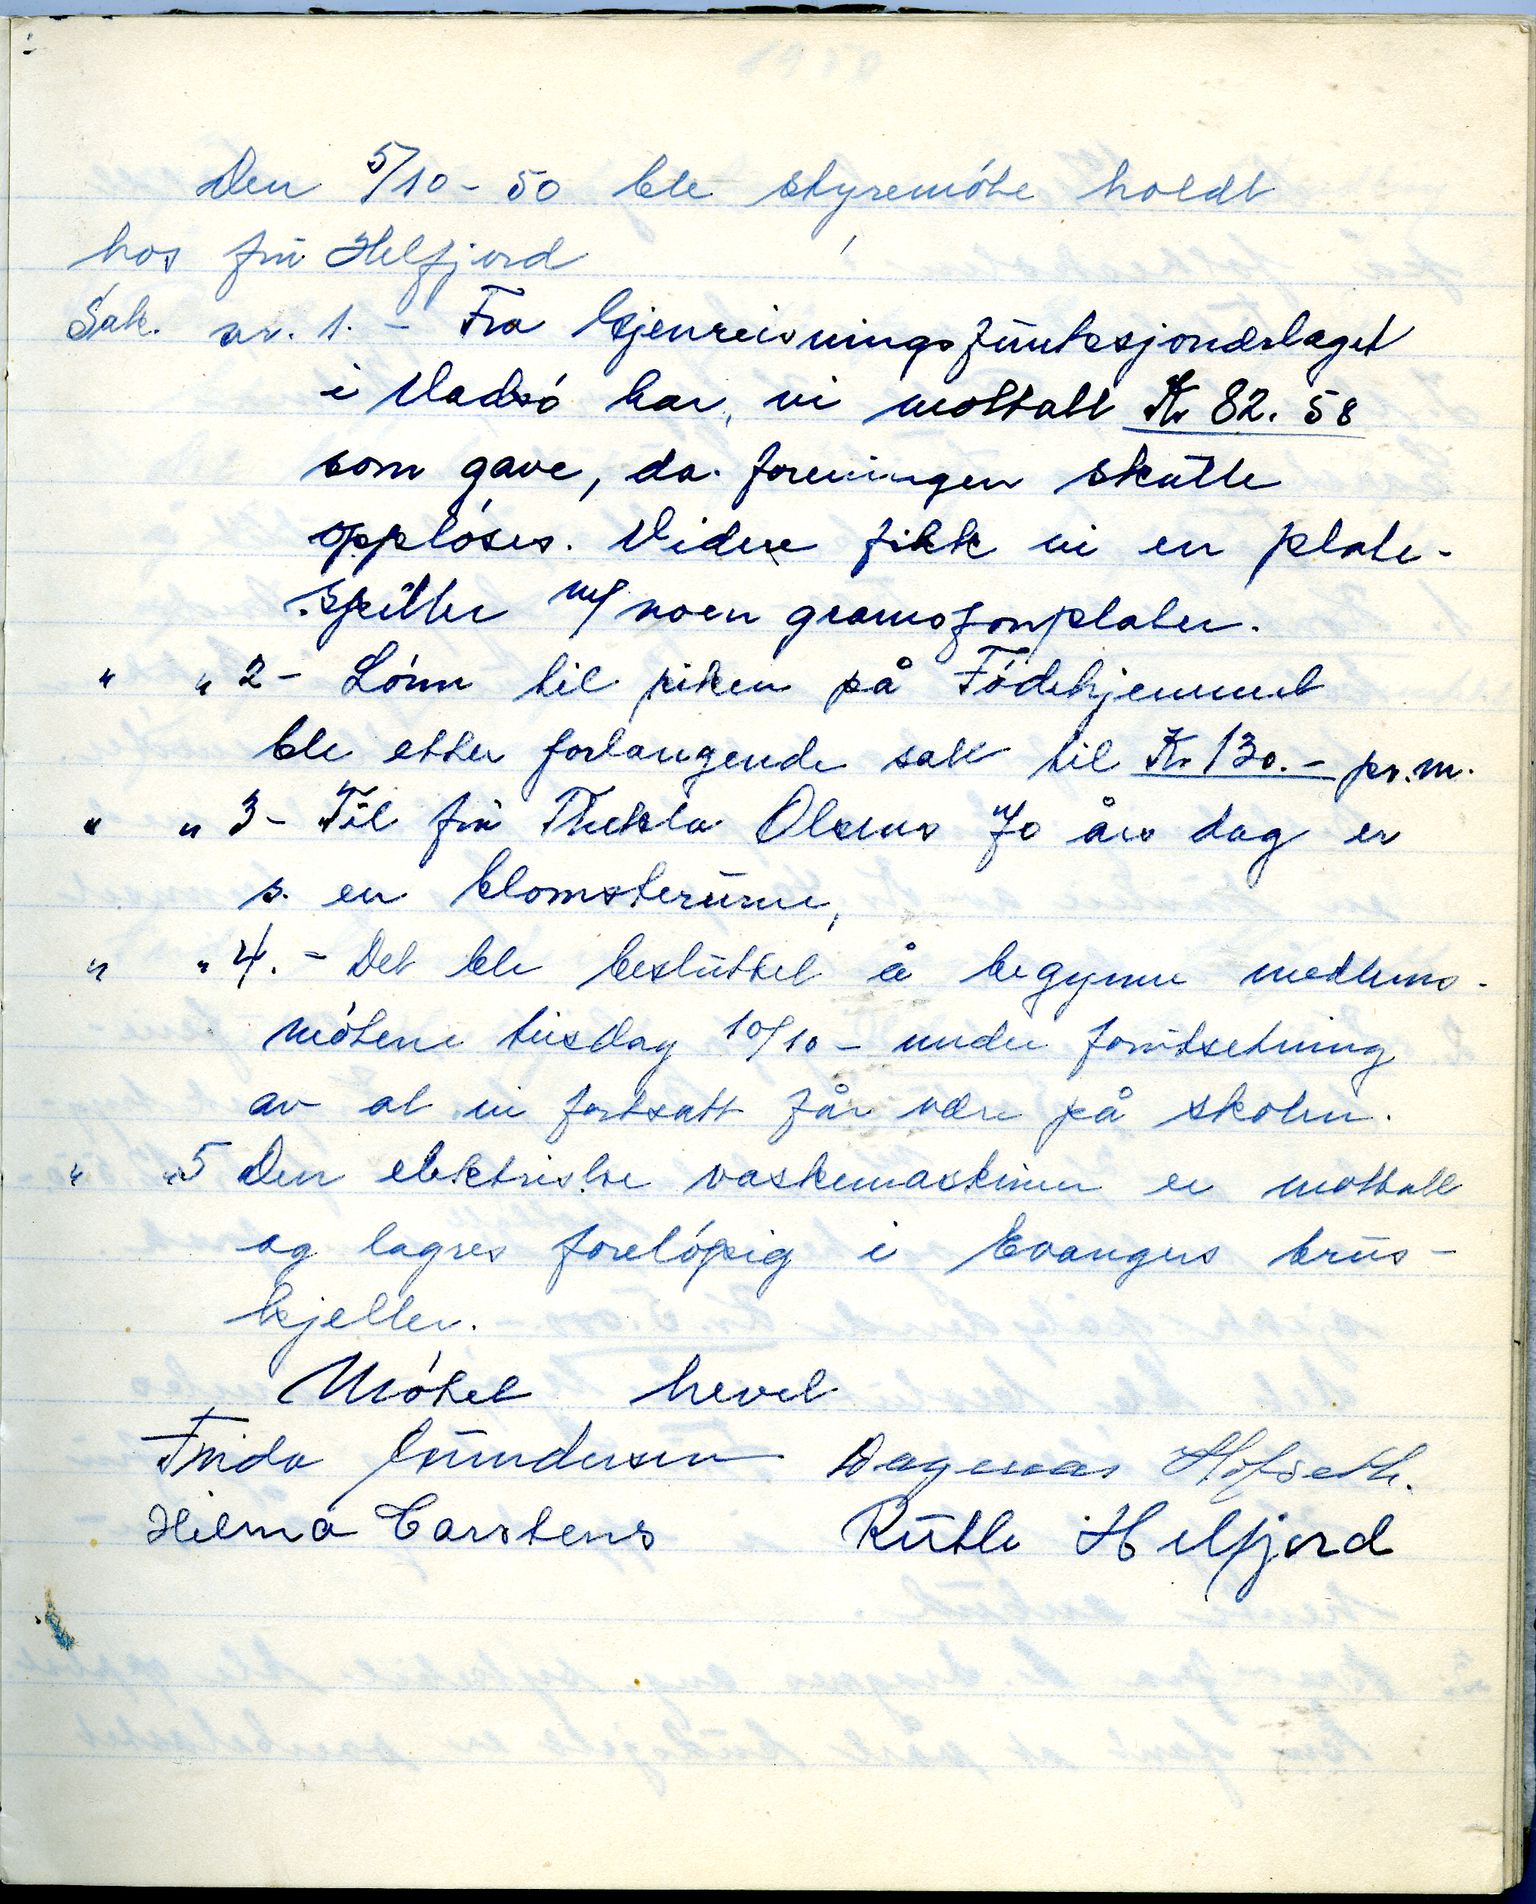 Den 5/10 - 50 ble styremöte holdt
hos frú Helfjord
Sak. nr. 1. - Fra Gjenreisningsfúnksjonærlaget
i Vadsö har vi mottatt Kr 82. 58
som gave, da foreningen skúlle
opplöses. Videre fikk vi en plate-
spiller m/ noen gramofonplater.
" " 2 - Lönn til piken på Födehjemmet
ble etter forlangende satt til Kr 130.- pr.m.
" " 3 - Til frú Thekla Olsens 70 års dag er
s. en blomsterúrne,
" " 4. - Det ble beslúttet å begynne medlems-
mötene tirsdag 10/10 - under forútsetning
av at vi fortsatt får være på skolen.
" " 5 Den elektriske vaskemaskinen er mottatt
og lagres forelöpig i Evangers brús-
kjeller.
Mötet hevet
Frida Gúndersen Dagmar Hofseth.
Hilma Carstens Rúth Helfjord